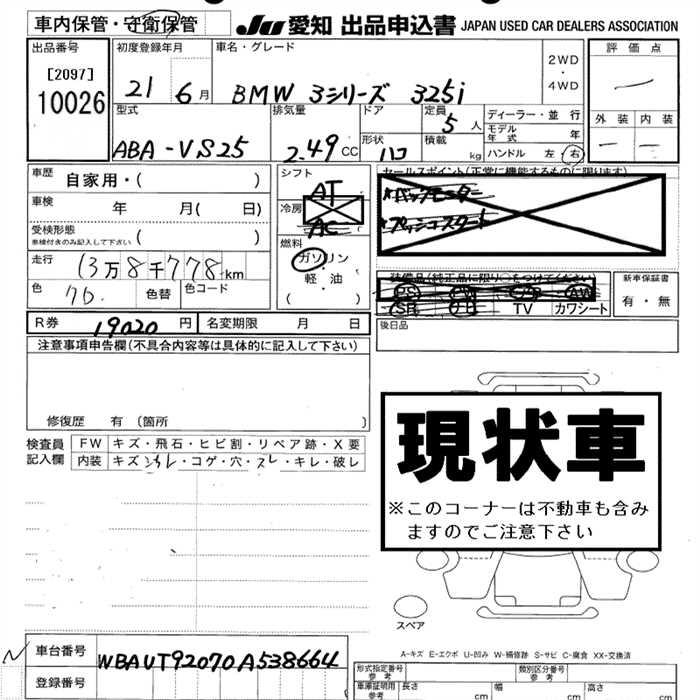 車内保管・守衛保管 JU 愛知 出品申込書 JAPAN USED CAR DEALERS ASSOCIATION
出品番号 初度登録年月 車名・グレード 評価点
[2097] 10026 21 6月 BMW 3シリーズ 325i 2WD・4WD
型式 排気量 ドア 定員 ディーラー・並行 外装 内装
ABA-VS25 2.49cc 形状 ハコ 5人 積載 kg モデル年式 年
ハンドル 左 右
車歴 自家用・( ) シフト AT セールスポイント(正常に機能するものに限ります)
車検 年 月( 日) 冷房 AC バックモニター
プッシュスタート
受検形態 ( ) 車検付きのみ記入して下さい 燃料 ガソリン・軽油 ( )
走行 13万8千778km
色 色替 色コード 装備品(純正品に限り○をつけてください) 新車保証書
TV カワシート 有・無
R券 19020円 名変期限 月 日 後日品
注意事項申告欄(不具合内容等は具体的に記入して下さい)
修復歴 有 (箇所 )
検査員記入欄 FW キズ・飛石・ヒビ割・リペア跡・X要
内装 キズ・コゲ・穴・スレ・キレ・破レ
現状車
※このコーナーは不動車も含み
ますのでご注意下さい
スペア
A-キズ E-エクボ U-凹み W-補修跡 S-サビ C-腐食 XX-交換済
車台番号 WBAUT92070A538664
登録番号
形式指定番号 参考 類別区分番号 参考
車庫証明用 参考 長さ cm 幅 cm 高さ cm